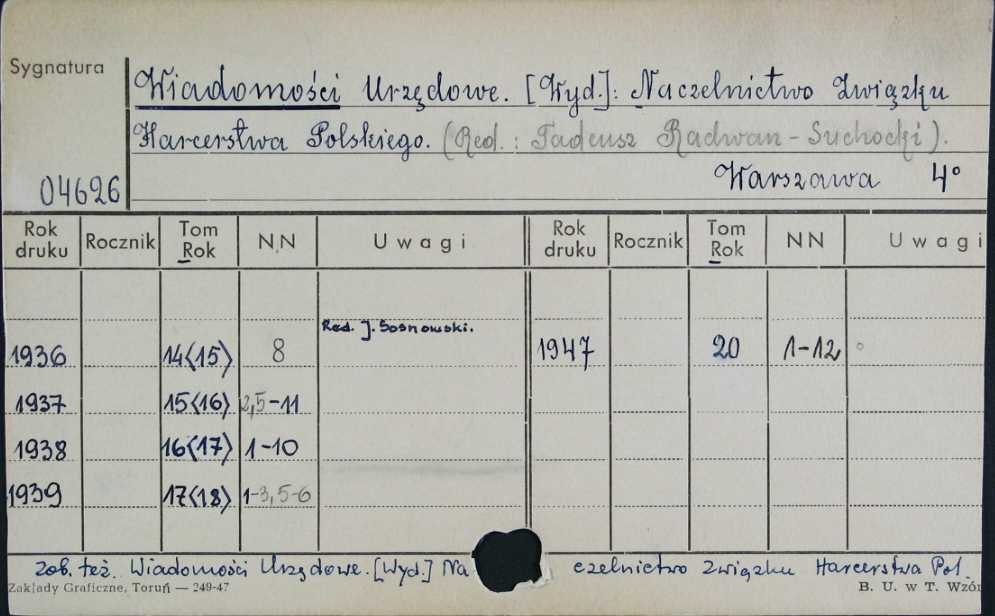 Sygnatura
Wiadomości Urzędowe. [Wyd.]: Naczelnictwo Związku
Harcerstwa Polskiego. (Red.: Tadeusz Radwan-Suchocki).
04626 Warszawa 4°
Rok druku Rocznik Tom Rok N.N Uwagi Rok druku Rocznik Tom Rok NN Uwagi
Red. J. Sosnowski.
1936 14<15> 8 1947 20 1-12
1937 15<16> 2,5-11
1938 16<17> 1-10
1939 17<18> 1-3,5-6
zob. też. Wiadomości Urzędowe. [Wyd.] Naczelnictwo Związku Harcerstwa Pol.
Zakłady Graficzne, Toruń — 249-47 B. U. w T. Wzór